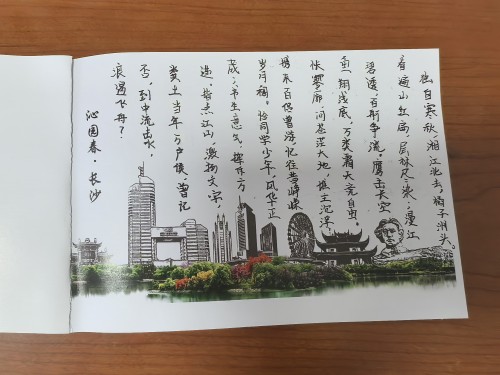 独自寒秋,湘江北去,橘子洲头。
看遍山红遍,层林尽染;漫江
碧透,百舸争流。鹰击长空
鱼翔浅底,万类霜天竞自由。
怅寥廓,问苍茫大地,谁主沉浮。
携来百侣曾游,忆往昔峥嵘
岁月稠。恰同学少年,风华正
茂;书生意气,挥斥方
遒。指点江山,激扬文字,
粪土当年万户侯。曾记
否,到中流击水,
浪遏飞舟?
沁园春·长沙